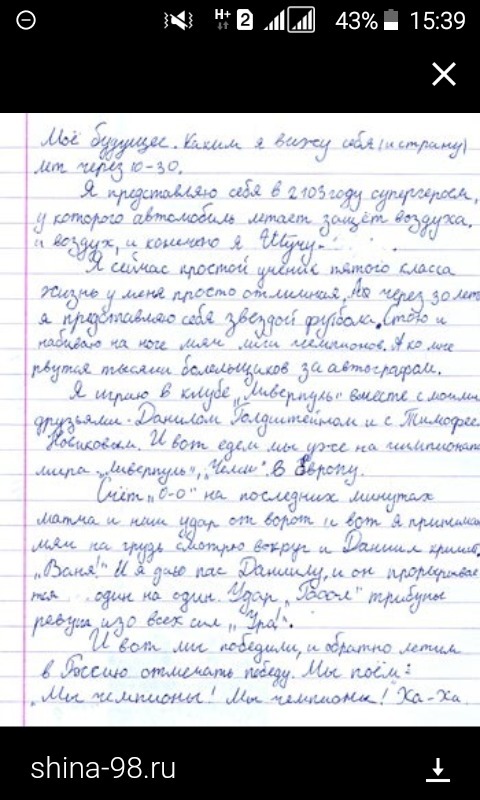 H+ 2 43% 15:39
Моё будущее. Каким я вижу себя (и страну)
лет через 10-30.
Я представляю себя в 2103 году супергероем,
у которого автомобиль летает защёт воздуха.
и воздух, и конечно я Шучу-
Я сейчас простой ученик пятого класса
жизнь у меня просто отличная. Но через 30 лет
я представляю себя звездой футбола. Стою и
набиваю на ноге мяч лиги чемпионов. А ко мне
рвутся тысячи болельщиков за автографом.
Я играю в клубе „Ливерпуль" вместе с моими
друзьями - Данилом Голдштейном и с Тимофеем
Новиковым. И вот едем мы уже на чемпионат
мира „Ливерпуль", „Челси". в Европу.
Счёт „0-0" на последних минутах
матча и наш удар от ворот и вот я принимаю
мяч на грудь смотрю вокруг и Даниил кричит,
„Ваня!" И я даю пас Даниилу, и он прорывает
тся один на один. Удар „Гооол" трибуны
ревущ изо всех сил „Ура!".
И вот мы победили, и обратно летим
в Россию отмечать победу. Мы поём:
„Мы чемпионы! Мы чемпионы!" Ха-Ха.
shina-98.ru